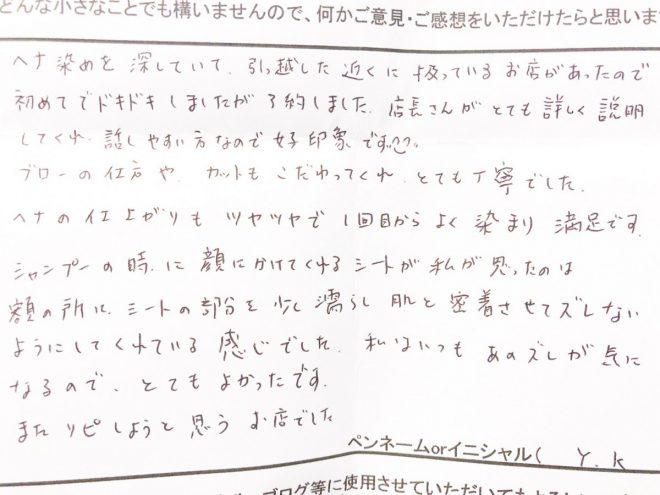 どんな小さなことでも構いませんので、何かご意見・ご感想をいただけたらと思いま
ヘナ染めを探していて、引越した近くに扱っているお店があったので
初めてでドキドキしましたが予約しました。店長さんがとても詳しく説明
してくれ、話しやすい方なので好印象です♡♡。
ブローの仕方や、カットもこだわってくれ、とても丁寧でした。
ヘナの仕上がりもツヤツヤで1回目からよく染まり満足です。
シャンプーの時に顔にかけてくれるシートが私が思ったのは
額の所に、シートの部分を少し濡らし肌と密着させてズレない
ようにしてくれている感じでした。私はいつもあのズレが気に
なるので、とてもよかったです。
またリピしようと思うお店でした
ペンネームorイニシャル( Y.K
ブログ等に使用させていただいても